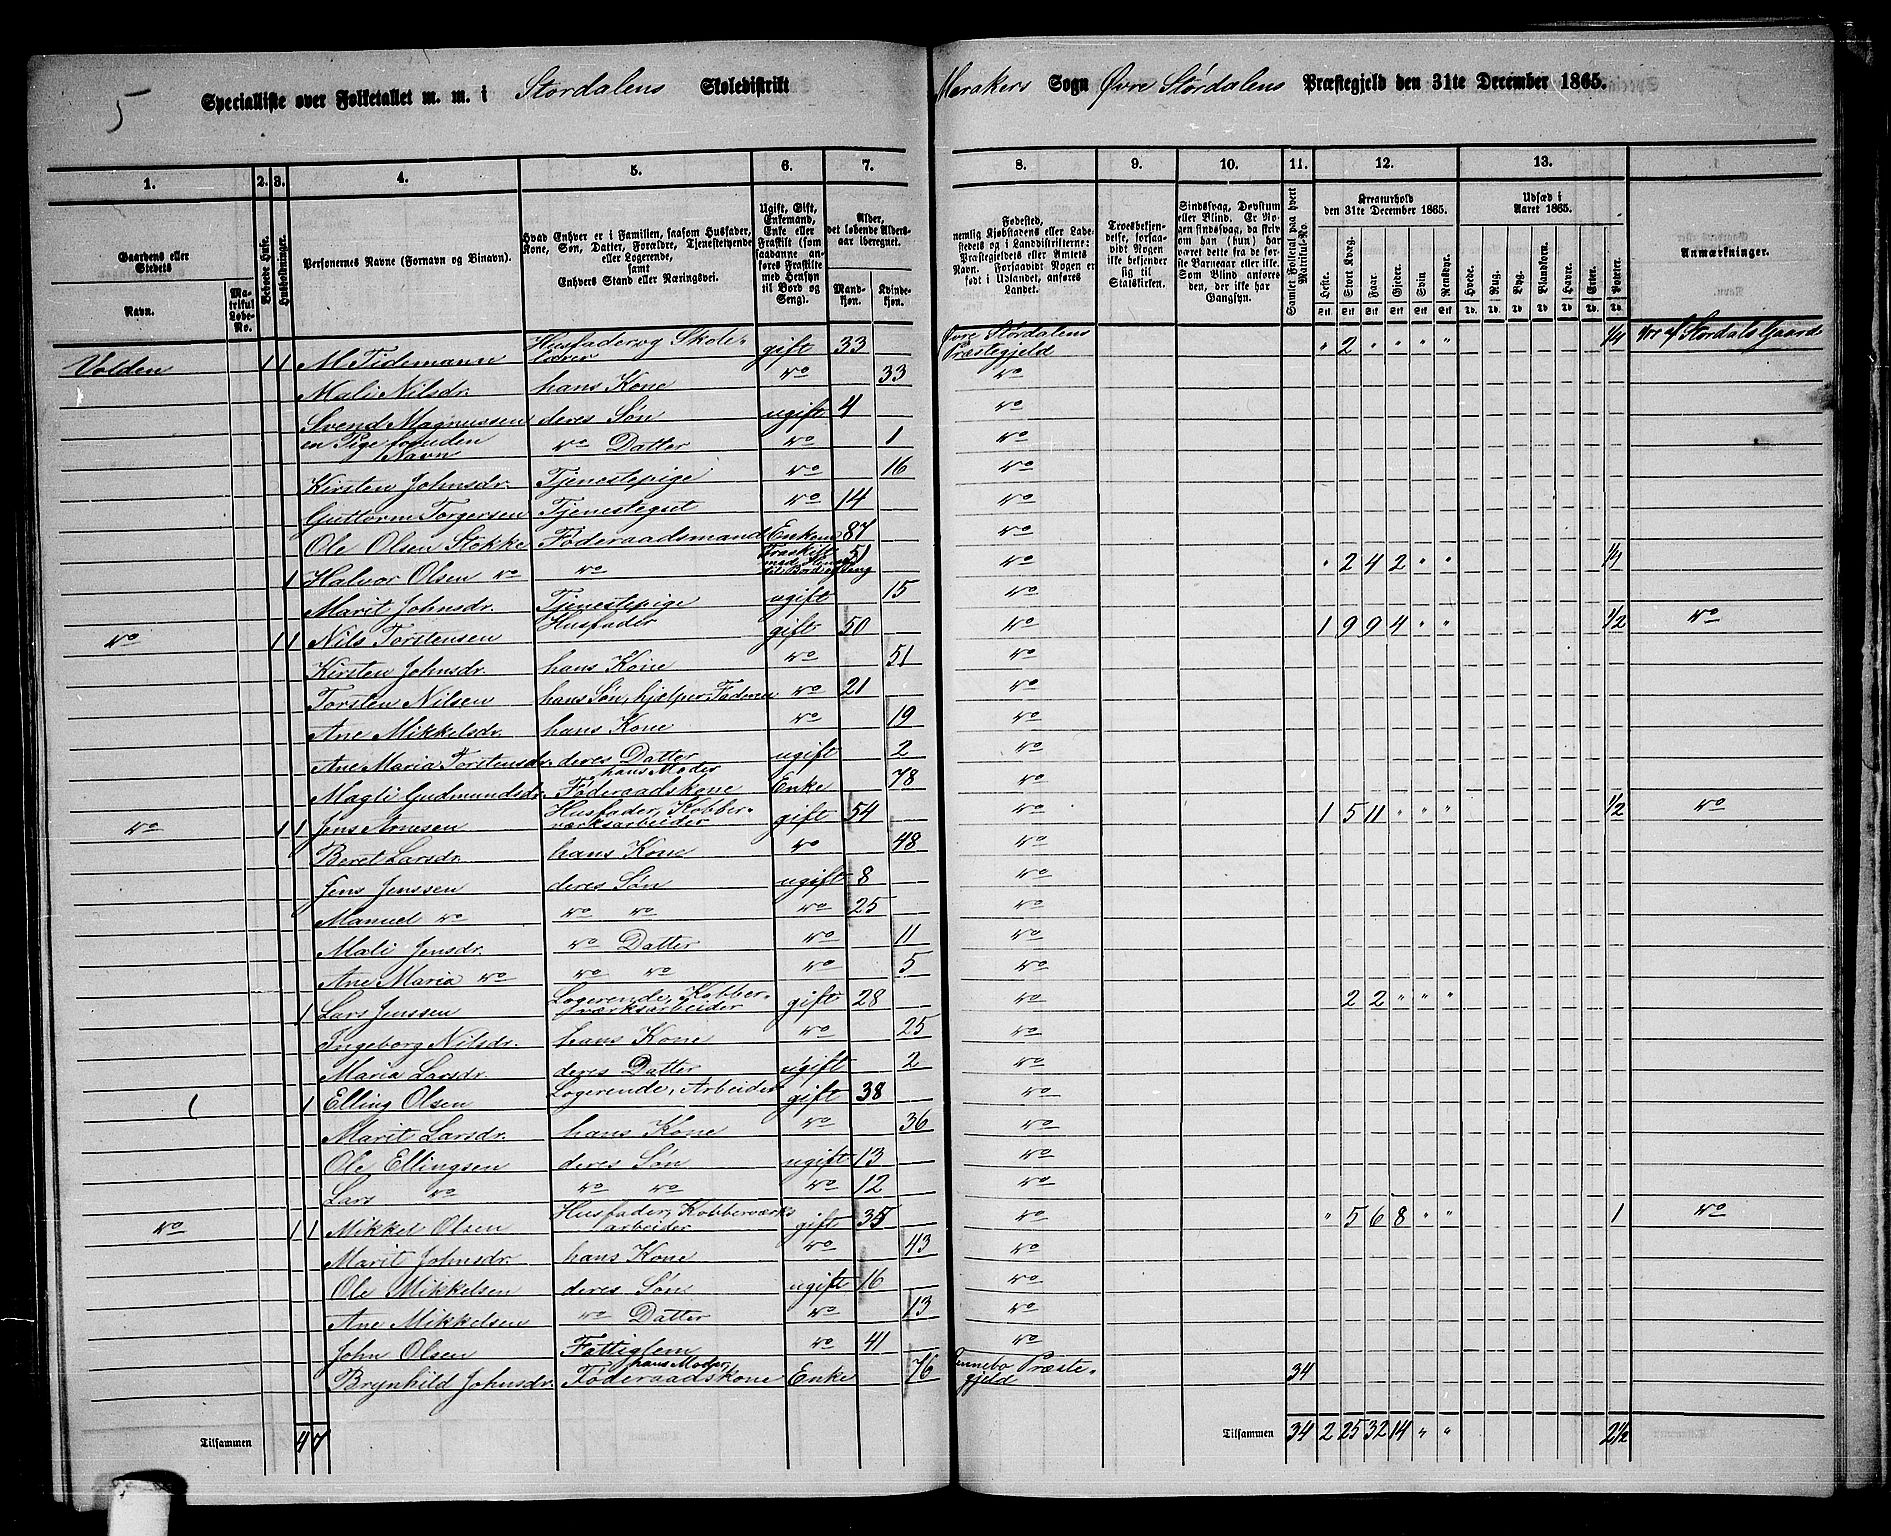 5
Specialliste over Folketallet m. m. i Stordalens Skoledistrikt Merakers Sogn Øvre Størdalens Præstegjeld den 31te December 1865.
1. 2. 3. 4. 5. 6. 7. 8. 9. 10. 11. 12. 13.
Gaardens eller Stedets
Navn. Matrikul Løbe-No.
Beboede Huse.
Husholdninger.
Personernes Navne (Fornavn og Binavn).
Hvad Enhver er i Familien, saasom Husfader, Kone, Søn, Datter, Forældre, Tjenestetyende eller Logerende, samt Enhvers Stand eller Næringsvei.
Ugift, Gift, Enkemand, Enke eller Fraskilt (som saadanne anføres Fraskilte med Hensyn til Bord og Seng).
Alder, det løbende Aldersaar iberegnet.
Mandkjøn. Kvindekjøn.
Fødested, nemlig Kjøbstadens eller Ladestedets og i Landdistrikterne: Præstegjeldets eller Amtets Navn. Forsaavidt Nogen er født i Udlandet, anføres Landet.
Troesbekjendelse, forsaavidt Nogen ikke bekjender sig til Statskirken.
Sindssvag, Døvstum eller Blind. Er Nogen sindssvag, da skrives om han (hun) har været dette fra de første Barneaar eller ikke. Som Blind anføres den, der ikke har Gangsyn.
Samlet Folketal paa hvert Matrikul-No.
Kreaturhold den 31te December 1865.
Heste. Stort Kvæg. Faar. Gjeder. Svin. Rensdyr.
Udsæd i Aaret 1865.
Hvede. Rug. Byg. Blandkorn. Havre. Erter. Poteter.
Anmærkninger.
Volden 1 1 M Tidemann Husfader og Skolelærer gift 33 Øvre Stordalens Præstegjeld " 2 " " " " 1/4 Stordals Gaard
Mali Nilsdr. hans Kone do 33 do
Svend Magnussen deres Søn ugift 4 do
en Pige foruden Navn do Datter do 1 do
Kirsten Johnsdr. Tjenestepige do 16 do
Guttorm Torgersen Tjenestegut do 14 do
Ole Olsen Stokke Føderaademand Enkem 87 do
1 Halvor Olsen do do Fraskilt 51 do " 2 4 2 " " 1/4
Marit Johnsdr. Tjenestepige ugift 15 do
do 1 1 Nils Torstensen Husfader gift 50 do 1 9 9 4 " " 1/2 do
Kirsten Johnsdr. hans Kone do 51 do
Torsten Nilsen hans Søn, hjelper Faderen do 21 do
Ane Mikkelsdr. hans Kone do 19 do
Ane Maria Torstensdr. deres Datter ugift 2 do
Magli Gudmundsdr. hans Moder Føderaadskone Enke 78 do
do 1 1 Jens Arnesen Husfader, Kobberværksarbeider gift 54 do 1 5 11 " " " 1/2 do
Beret Larsdr. hans Kone do 48 do
Jens Jenssen deres Søn ugift 8 do
Manuel do do do do 25 do
Mali Jensdr. do Datter do 11 do
Ane Maria do do do do 5 do
1 Lars Jenssen Logerende, Kobberværksarbeider gift 28 do 2 2 " " "
Ingeborg Nilsdr. hans Kone do 25 do
Maria Larsdr. deres Datter ugift 2 do
1 Elling Olsen Logerende, Arbeider gift 38 do
Marit Larsdr. hans Kone do 36 do
Ole Ellingsen deres Søn ugift 13 do
Lars do do do do 12 do
do 1 1 Mikkel Olsen Husfader, Kobberværksarbeider gift 35 do " 5 6 8 " " 1 do
Marit Johnsdr. hans Kone do 43 do
Ole Mikkelsen deres Søn ugift 16 do
Ane Mikkelsen do Datter do 13 do
John Olsen Fattiglem do 41 do
Brynhild Johnsdr. hans Moder, Føderaadskone Enke 76 Rennebo Præstegjeld 34
Tilsammen 4 7 Tilsammen 34 2 25 32 14 " " 2 1/2